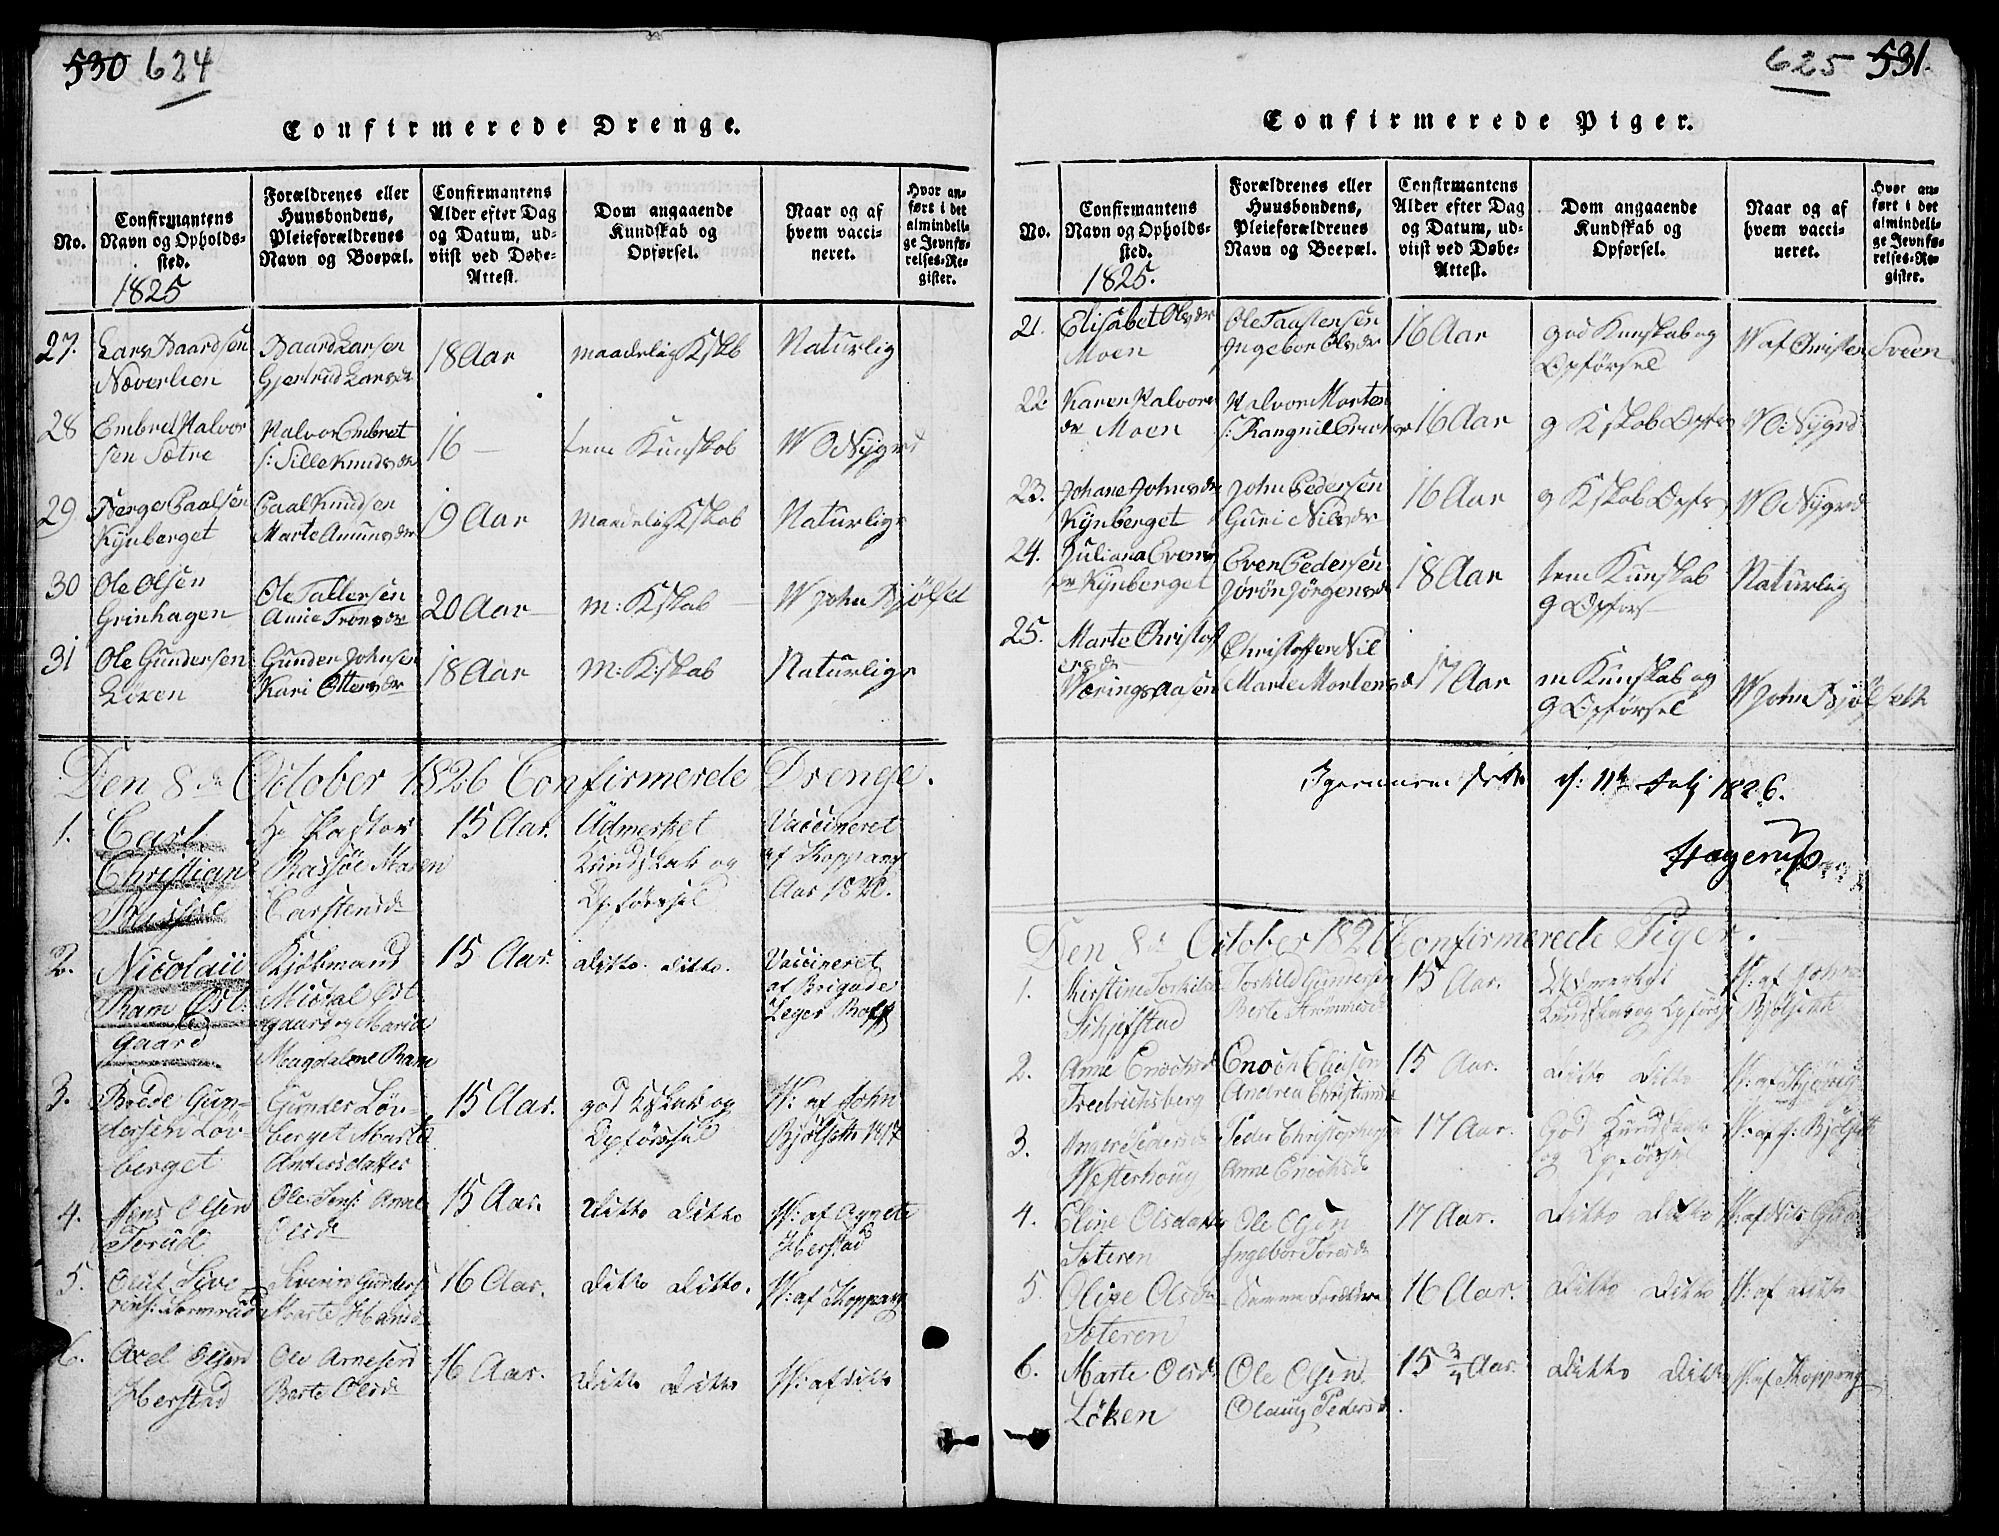 530 624
Confirmerede Drenge.
No.
Confirmantens
Navn og Opholds-
sted.
1825
Forældrenes eller
Huusbondens,
Pleieforældrenes
Navn og Boepæl.
Confirmantens
Alder efter Dag
og Datum, ud-
viist ved Døbe-
Attest.
Dom angaaende
Kundskab og
Opførsel.
Naar og af
hvem vacci-
neret.
Hvor an-
ført i det
almindeli-
ge Jevnfø-
relses-Re-
gister.
27. Lars Baardsen
Næverlien
Baard Larsen
Gjertrud Larsdr
18 Aar
maadelig Kskb
Naturlig
28 Embret Halvor
sen Sætre
Halvor Embret
s: Sille Knudsdr
16 —
tem Kunskab
W O Nygrd
29 Berger Paalsen
Kynberget
Paal Knudsen
Marte Amunsdr
19 Aar
Maadelig Kskab
Naturlige
30 Ole Olsen
Grinhagen
Ole Tallersen
Anne Tronsdr
20 Aar
m: Kskab
W John Bjølset
31 Ole Gundersen
Løken
Gunder Johnsen
Kari Ottersdr
18 Aar
m: K:skab
Naturlige
Den 8de October 1826 Confirmerede Drenge.
1. Carl
Christian
Hr Pastor
Bassøe Maren
Carstensd
15 Aar.
Udmerket
Kundskab og
Opførssel
Vaccineret
af Koppang
Aar 1820.
2. Nicolai
Ram Øst-
gaard
Kjøbmand
Mictal Øst-
gaard og Maria
Magdalene Ram
15 Aar.
ditto ditto.
Vaccineret
af Brigade
Læger
3. Brede Gun-
dersen Løv-
berget
Gunder Løv-
berget Marte
Andersdatter
15 Aar.
god Kskab og
Opførssel
W: af John
Bjølseth 1817
4. Jens Olsen
Torud
Ole Jens:
Olsd
15 Aar.
Ditto ditto
W: af Aggete
Herstad
5. Oluf Sive
rins:
Siverin Gunders
Marte Hansd
16 Aar.
ditto ditto.
W: af Koppang
6. Axel Olsen
Herstad
Ole Arnesen
Berte Olsd
16 Aar.
ditto ditto
W: af ditto
625 531.
Confirmerede Piger.
No.
Confirmantens
Navn og Opholds-
sted.
1825.
Forældrenes eller
Huusbondens,
Pleieforældrenes
Navn og Boepæl.
Confirmantens
Alder efter Dag
og Datum, ud-
viist ved Døbe-
Attest.
Dom angaaende
Kundskab og
Opførsel.
Naar og af
hvem vacci-
neret.
Hvor an-
ført i det
almindeli-
ge Jevnfø-
relses-Re-
gister.
21. Elisabet Olsdr
Moen
Ole Taastensen
Ingebor Olsdr
16 Aar
god Kunskab og
Opførsel
W af Christen Sveen
22 Karen Halvors
dr Moen
Halvor Morten
s: Rangnil
16 Aar
g Kskab Opfs
W O Nygrd
23. Johane Johnsdr
Kynberget
John Pedersen
Guri Nilsdr
16 Aar
g Kskab Opfs
W O Nygrd
24. Juliana Evens
dr Kynberget
Even Pedersen
Jørøn Jørgensd
18 Aar
tem Kunskab
g Opførs
Naturlig
25. Marte Christof
ersdr
Wæringsaasen
Christoffer Nil
Marte Mortensd
17 Aar
m Kunskab og
g Opførsel
W John Bjølseth
d: 11te Julj 1826.
Hagerup
Den 8de October 1826 Confirmerede Piger.
1. Kirstine Torkilsd
Schjefstad
Torkild Gundersen
Berte
15 Aar.
Udmerket
Kundskab og Opførsel
W: af John
Bjølseth
2. Anne Enochsd
Fredrichsberg
Enoch Eliasen
Andrea Christiansd
15 Aar.
ditto ditto
3. Pedersd
Westerhoug
Peder Christophersen
Anne Enochsd
17 Aar.
God Kundskab
og Opførssel
W: af J: Bjølseth
4. Eline Olsdatter
Søteren
Ole Olsen
Ingebor Toresd
17 Aar.
ditto ditto
W: af Nils
5. Oline Olsd
Søteren
Samme Forældre
16 Aar.
ditto ditto
W: af ditto
6. Marte Olsd
Løken
Ole Olsen
Olaug Pedersd.
15 3/4 Aar.
ditto ditto
W: af Koppang